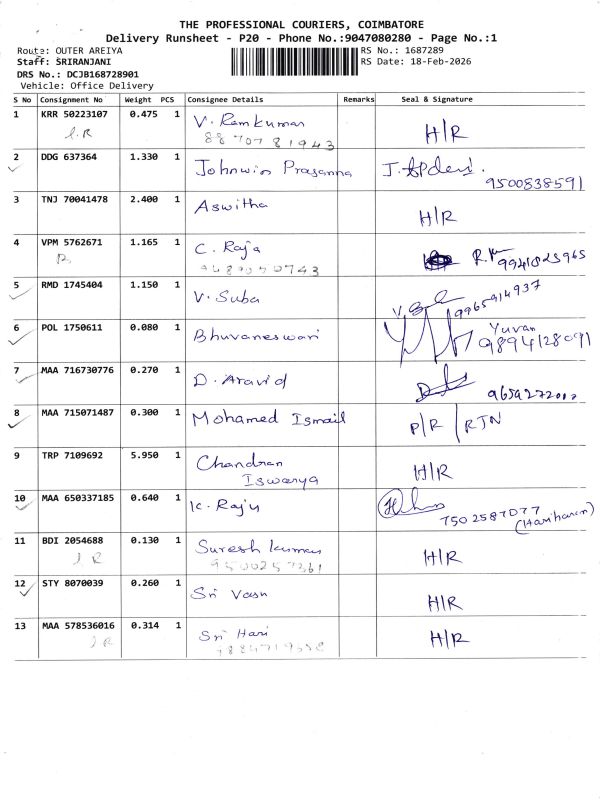 THE PROFESSIONAL COURIERS, COIMBATORE
Delivery Runsheet - P20 - Phone No.:9047080280 - Page No.:1
Route: OUTER AREIYA
RS No.: 1687289
Staff: SRIRANJANI
RS Date: 18-Feb-2026
DRS No.: DCJB168728901
Vehicle: Office Delivery
S No Consignment No Weight PCS Consignee Details Remarks Seal & Signature
1 KRR 50223107 0.475 1 V. Ramkumar H/R
8870781943
2 DDG 637364 1.330 1 Johnwin Prasanna
9500838591
3 TNJ 70041478 2.400 1 Aswitha H/R
4 VPM 5762671 1.165 1 C. Raja 9941025965
5 RMD 1745404 1.150 1 V. Suba 9965914937
6 POL 1750611 0.080 1 Bhuvaneswari Yuvan
9894128091
7 MAA 716730776 0.270 1 D. Aravid
8 MAA 715071487 0.300 1 Mohamed Ismail P/R / RTN
9 TRP 7109692 5.950 1 Chandran H/R
Iswarya
10 MAA 650337185 0.640 1 K. Raju
7502587077
(Hariharan)
11 BDI 2054688 0.130 1 Suresh kumar H/R
12 STY 8070039 0.260 1 Sri Vasu H/R
13 MAA 578536016 0.314 1 Sri Hari H/R